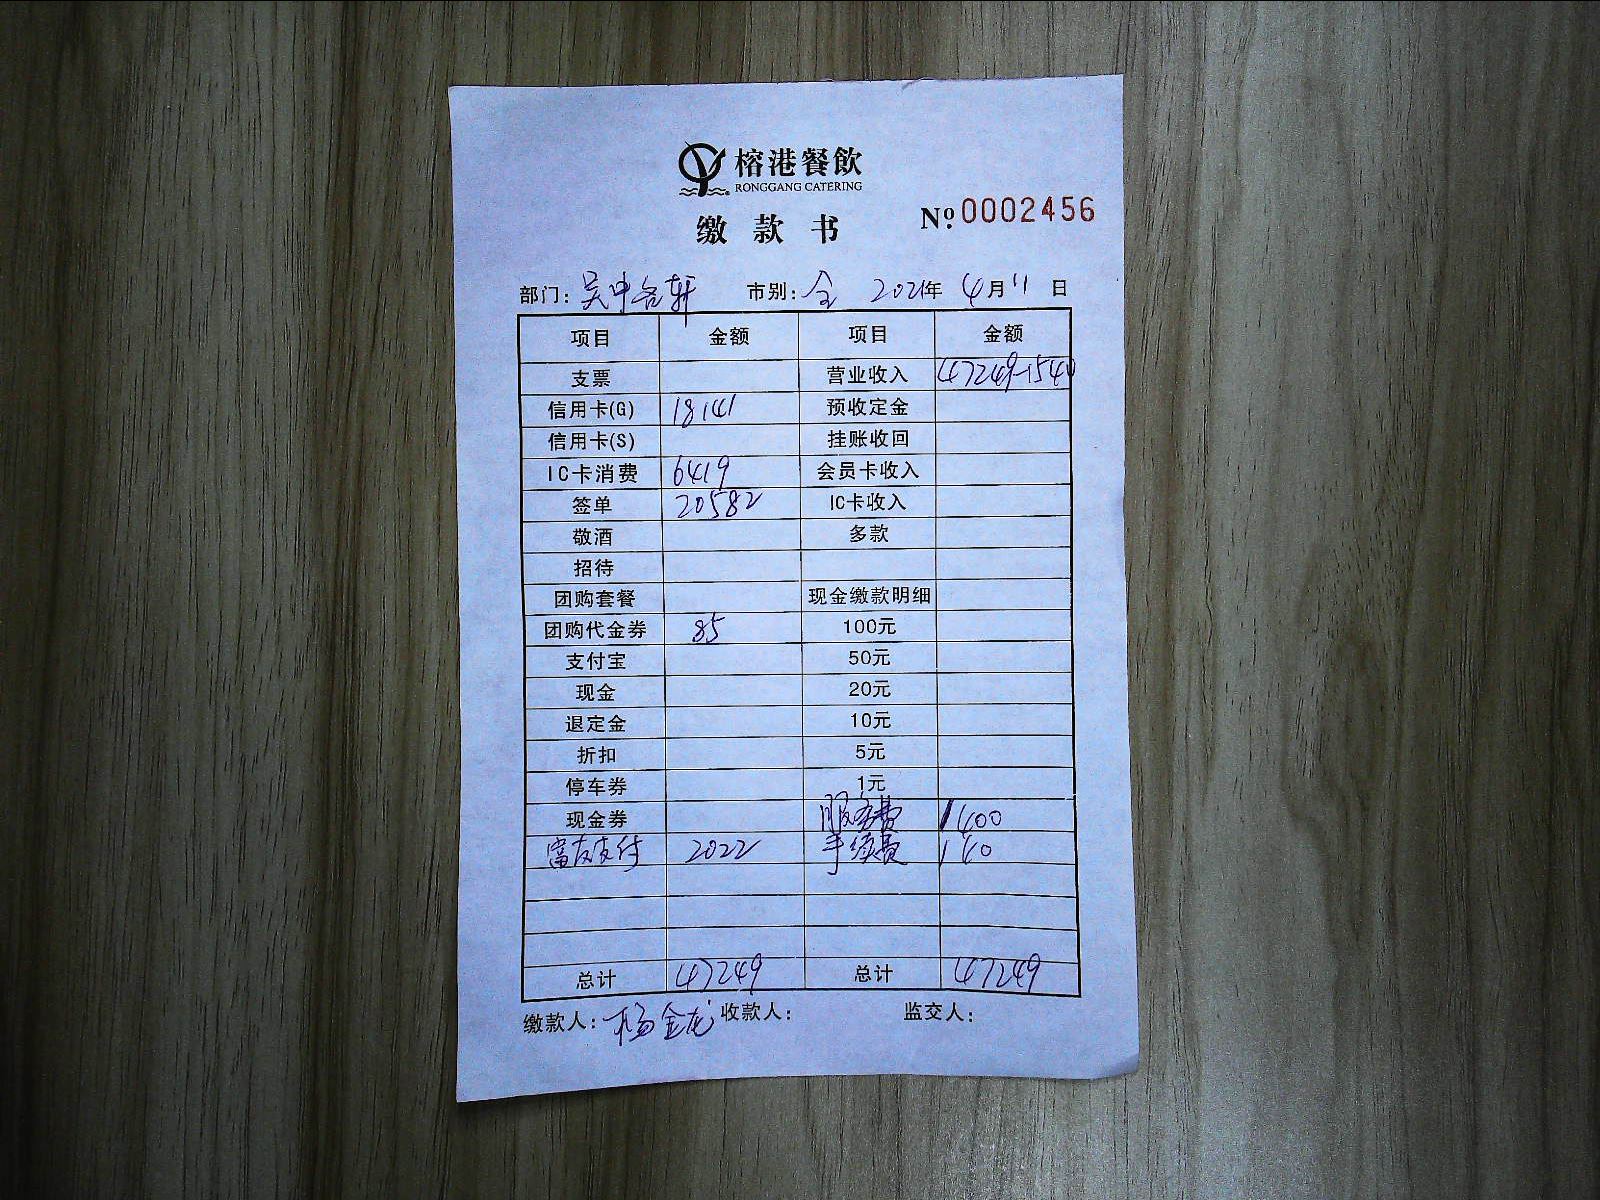 榕港餐飲
RONGGANG CATERING
缴款书 Nº 0002456
部门: 吴中名轩 市别: 全 2021年 4月 11日
项目 金额 项目 金额
支票 营业收入 47249-1540
信用卡(G) 18141 预收定金
信用卡(S) 挂账收回
IC卡消费 6419 会员卡收入
签单 20582 IC卡收入
敬酒 多款
招待
团购套餐 现金缴款明细
团购代金券 85 100元
支付宝 50元
现金 20元
退定金 10元
折扣 5元
停车券 1元
现金券 服务费 1400
富友支付 2022 手续费 140
总计 47249 总计 47249
缴款人: 杨金龙 收款人: 监交人: